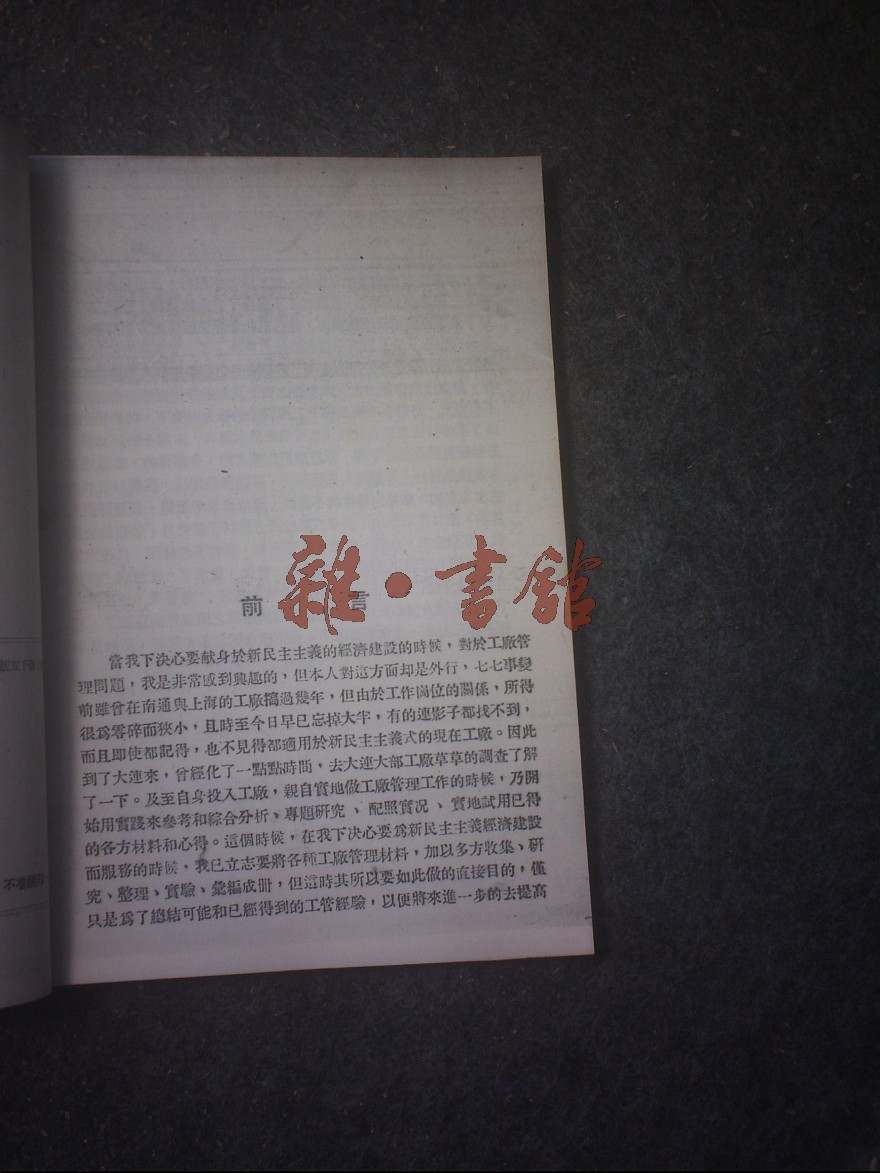 前言
雜·書舘
當我下決心要献身於新民主主義的經濟建設的時候，對於工廠管
理問題，我是非常感到興趣的，但本人對這方面却是外行，七七事變
前雖曾在南通與上海的工廠搞過幾年，但由於工作崗位的關係，所得
很爲零碎而狹小，且時至今日早已忘掉大半，有的連影子都找不到，
而且即使都記得，也不見得都適用於新民主主義式的現在工廠。因此
到了大連來，曾經化了一點點時間，去大連大部工廠草草的調查了解
了一下。及至自身投入工廠，親自實地做工廠管理工作的時候，乃開
始用實踐來參考和綜合分析、專題研究、配照實况、實地試用已得
的各方材料和心得。這個時候，在我下決心要爲新民主主義經濟建設
而服務的時候，我已立志要將各種工廠管理材料，加以多方收集、研
究、整理、實驗、彙編成册，但這時其所以要如此做的直接目的，僅
只是爲了總結可能和已經得到的工管經驗，以便將來進一步的去提高